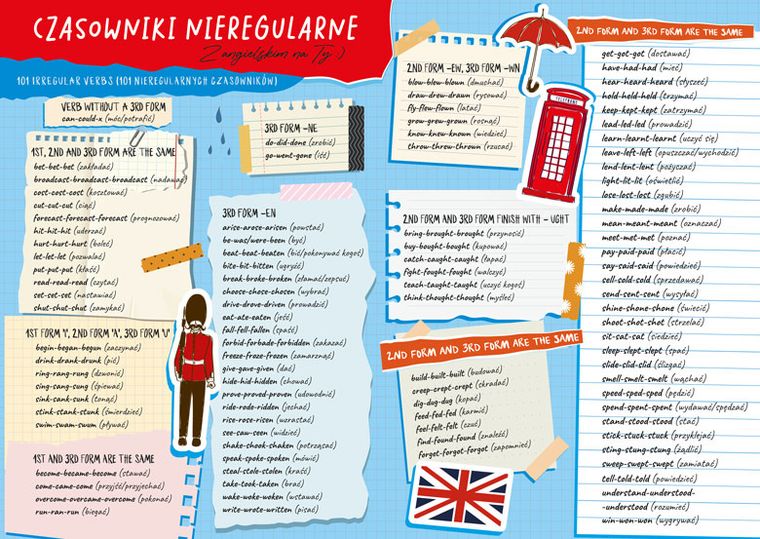 CZASOWNIKI NIEREGULARNE
Z angielskim na Ty :)
101 IRREGULAR VERBS (101 NIEREGULARNYCH CZASOWNIKÓW)
VERB WITHOUT A 3RD FORM
can-could-x (móc/potrafić)
1ST, 2ND AND 3RD FORM ARE THE SAME
bet-bet-bet (zakładać)
broadcast-broadcast-broadcast (nadawać)
cost-cost-cost (kosztować)
cut-cut-cut (ciąć)
forecast-forecast-forecast (prognozować)
hit-hit-hit (uderzać)
hurt-hurt-hurt (boleć)
let-let-let (pozwalać)
put-put-put (kłaść)
read-read-read (czytać)
set-set-set (nastawiać)
shut-shut-shut (zamykać)
1ST FORM 'I', 2ND FORM 'A', 3RD FORM 'U'
begin-began-begun (zaczynać)
drink-drank-drunk (pić)
ring-rang-rung (dzwonić)
sing-sang-sung (śpiewać)
sink-sank-sunk (tonąć)
stink-stank-stunk (śmierdzieć)
swim-swam-swum (pływać)
1ST AND 3RD FORM ARE THE SAME
become-became-become (stawać)
come-came-come (przyjść/przyjechać)
overcome-overcame-overcome (pokonać)
run-ran-run (biegać)
3RD FORM -NE
do-did-done (zrobić)
go-went-gone (iść)
3RD FORM -EN
arise-arose-arisen (powstać)
be-was/were-been (być)
beat-beat-beaten (bić/pokonywać kogoś)
bite-bit-bitten (ugryźć)
break-broke-broken (złamać/zepsuć)
choose-chose-chosen (wybrać)
drive-drove-driven (prowadzić)
eat-ate-eaten (jeść)
fall-fell-fallen (spaść)
forbid-forbade-forbidden (zakazać)
freeze-froze-frozen (zamarznąć)
give-gave-given (dać)
hide-hid-hidden (chować)
prove-proved-proven (udowodnić)
ride-rode-ridden (jechać)
rise-rose-risen (wzrastać)
see-saw-seen (widzieć)
shake-shook-shaken (potrząsać)
speak-spoke-spoken (mówić)
steal-stole-stolen (kraść)
take-took-taken (brać)
wake-woke-woken (wstawać)
write-wrote-written (pisać)
2ND FORM -EW, 3RD FORM -WN
blow-blew-blown (dmuchać)
draw-drew-drawn (rysować)
fly-flew-flown (latać)
grow-grew-grown (rosnąć)
know-knew-known (wiedzieć)
throw-threw-thrown (rzucać)
TELEPHONE
2ND FORM AND 3RD FORM FINISH WITH - UGHT
bring-brought-brought (przynosić)
buy-bought-bought (kupować)
catch-caught-caught (łapać)
fight-fought-fought (walczyć)
teach-taught-caught (uczyć kogoś)
think-thought-thought (myśleć)
2ND FORM AND 3RD FORM ARE THE SAME
build-built-built (budować)
creep-crept-crept (skradać)
dig-dug-dug (kopać)
feed-fed-fed (karmić)
feel-felt-felt (czuć)
find-found-found (znaleźć)
forget-forgot-forgot (zapomnieć)
2ND FORM AND 3RD FORM ARE THE SAME
get-got-got (dostawać)
have-had-had (mieć)
hear-heard-heard (słyszeć)
hold-held-held (trzymać)
keep-kept-kept (zatrzymać)
lead-led-led (prowadzić)
learn-learnt-learnt (uczyć się)
leave-left-left (opuszczać/wychodzić)
lend-lent-lent (pożyczać)
light-lit-lit (oświetlić)
lose-lost-lost (zgubić)
make-made-made (zrobić)
mean-meant-meant (oznaczać)
meet-met-met (poznać)
pay-paid-paid (płacić)
say-said-said (powiedzieć)
sell-sold-sold (sprzedawać)
send-sent-sent (wysyłać)
shine-shone-shone (świecić)
shoot-shot-shot (strzelać)
sit-sat-sat (siedzieć)
sleep-slept-slept (spać)
slide-slid-slid (ślizgać)
smell-smelt-smelt (wąchać)
speed-sped-sped (pędzić)
spend-spent-spent (wydawać/spędzać)
stand-stood-stood (stać)
stick-stuck-stuck (przyklejać)
sting-stung-stung (żądlić)
sweep-swept-swept (zamiatać)
tell-told-told (powiedzieć)
understand-understood-
-understood (rozumieć)
win-won-won (wygrywać)